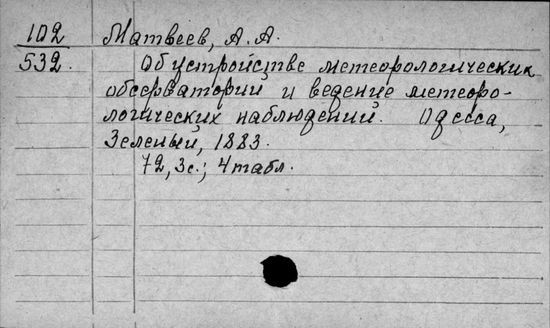 102 Матвеев, А. А.
532. Об устройстве метеорологических
обсерваторий и ведение метеоро-
логических наблюдений. Одесса,
Зеленый, 1883.
72, 3с.; 4 табл.